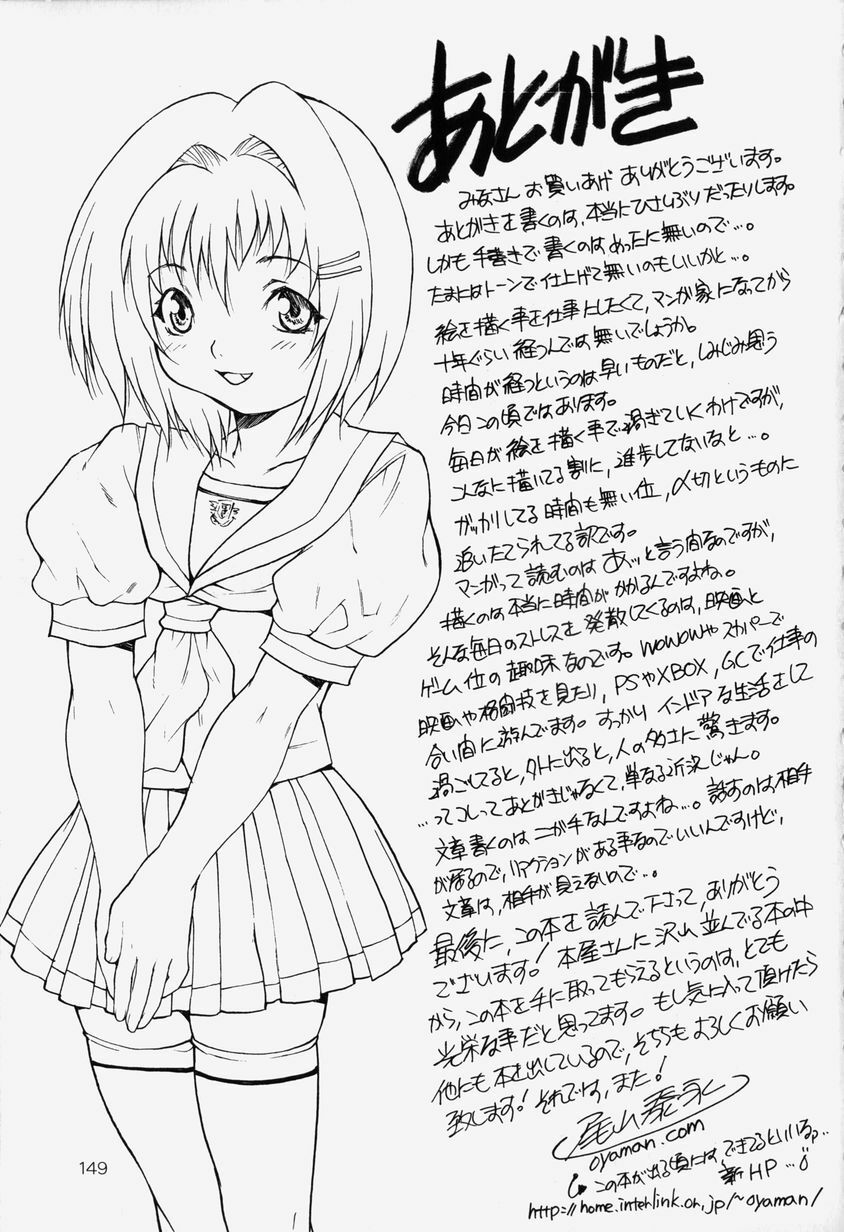 あとがき
みなさん お買いあげ ありがとうございます。
あとがきを書くのは、本当にひさしぶりだったりします。
しかも手書きで書くのは、めったに無いので…。
たまにはトーンで仕上げて無いのもいいかと…。
絵を描く事を仕事にしたくて、マンガ家になってから
十年ぐらい経つんでは無いでしょうか。
時間が経つというのは早いものだと、しみじみ思う
今日この頃ではあります。
毎日が絵を描く事で過ぎていくわけですが、
こんなに描いてる割に、進歩してないなと…。
ガッカリしてる時間も無い位、〆切というものに
追いたてられてる訳です。
マンガって読むのは あッと言う間なのですが、
描くのは本当に時間がかかるんですよね。
そんな毎日のストレスを発散してくるのは、映画と
ゲーム位の趣味なのです。WOWOWやスカパーで
映画や格闘技を見たり、PSやXBOX、GCで仕事の
合い間に遊んでます。すっかり インドアな生活をして
過ごしてると、外に出ると、人の多さに驚きます。
…ってコレってあとがきじゃなくて、単なる近況じゃん。
文章書くのは ニが手なんですよね…。話すのは、相手
が居るので、リアクションがある事なのでいいんですけど、
文章は、相手が見えないので…。
最後に、この本を読んで下さって、ありがとう
でざいます! 本屋さんに沢山並んでる本の中
から、この本を手に取ってもらえるというのは、とても
光栄な事だと思ってます。もし気に入って頂けたら
他にも本を出しているので、そちらも よろしくお願い
致します! それでは、また!
尾山泰永
oyaman.com
この本が出る頃には、できてるといいな…
新HP…
http://home.interlink.or.jp/~oyaman/
149